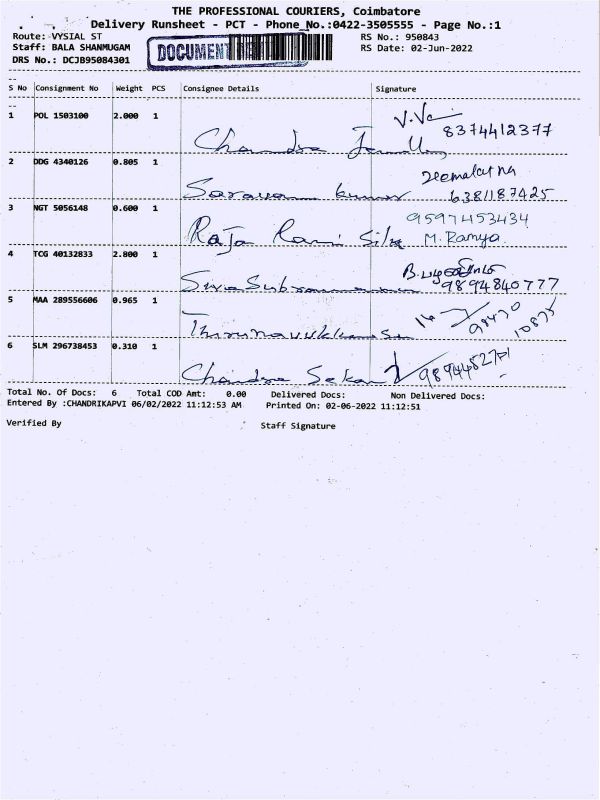 THE PROFESSIONAL COURIERS, Coimbatore
Delivery Runsheet - PCT - Phone_No.:0422-3505555 - Page No.:1
Route: VYSIAL ST RS No.: 950843
Staff: BALA SHANMUGAM DOCUMENT RS Date: 02-Jun-2022
DRS No.: DCJB95084301
S No Consignment No Weight PCS Consignee Details Signature
1 POL 1503100 2.000 1 8374412377
Chandra
2 DDG 4340126 0.805 1
Saravana kumar 6381187425
3 NGT 5056148 0.600 1 9597453434
Raja Rani Silk M. Ramya
4 TCG 40132833 2.800 1
Siva Subramanian 9894840777
5 MAA 289556606 0.965 1 98430 10875
Thirunavukkarasu
6 SLM 296738453 0.310 1
Chandra Sekar
Total No. Of Docs: 6 Total COD Amt: 0.00 Delivered Docs: Non Delivered Docs:
Entered By :CHANDRIKAPVI 06/02/2022 11:12:53 AM Printed On: 02-06-2022 11:12:51
Verified By Staff Signature